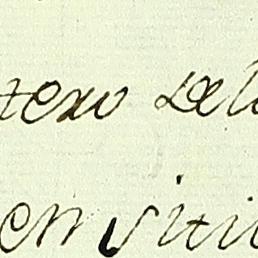 tero Del
en siti